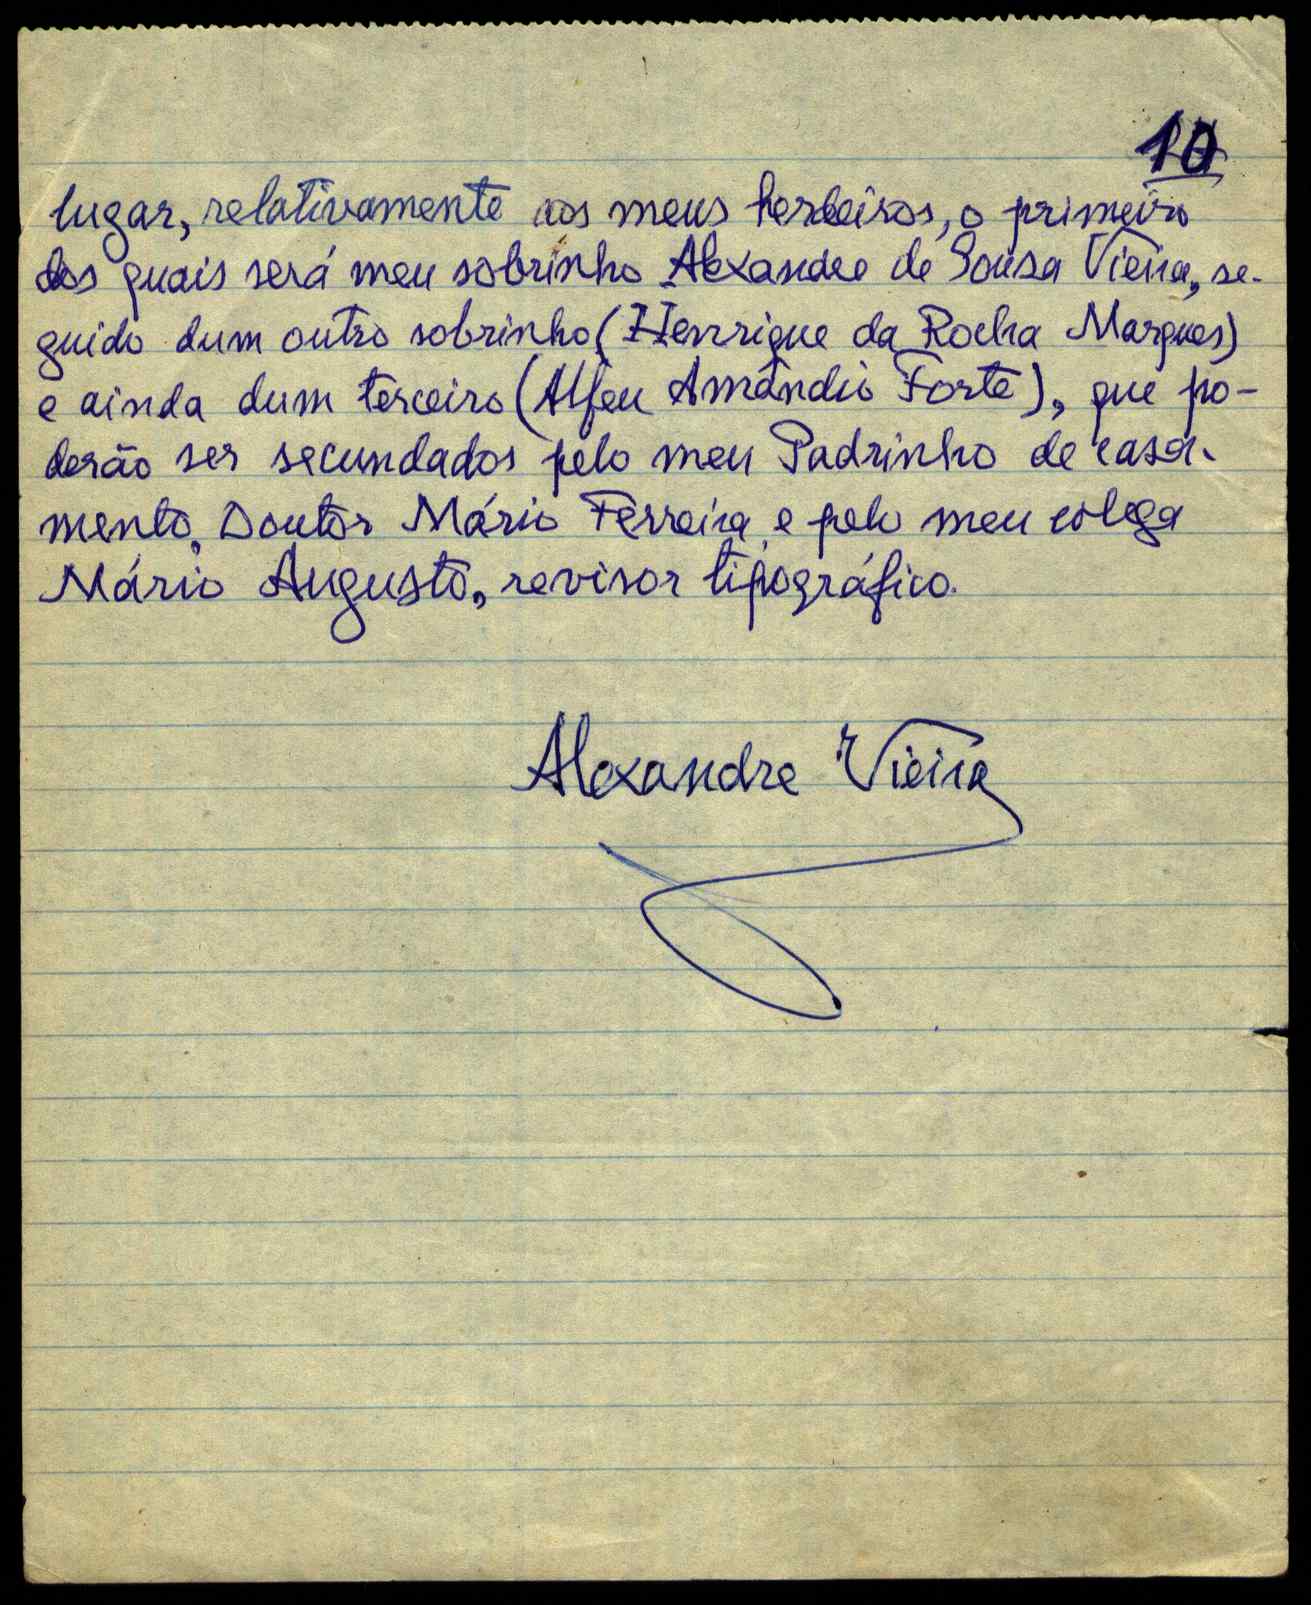 10
lugar, relativamente aos meus herdeiros, o primeiro
dos quais será meu sobrinho Alexandre de Sousa Vieira, se-
guido dum outro sobrinho (Henrique da Rocha Marques)
e ainda dum terceiro (Alfeu Amândio Forte), que po-
derão ser secundados pelo meu Padrinho de casa-
mento, Doutor Mário Ferreira, e pelo meu colega
Mário Augusto, revisor tipográfico.
Alexandre Vieira